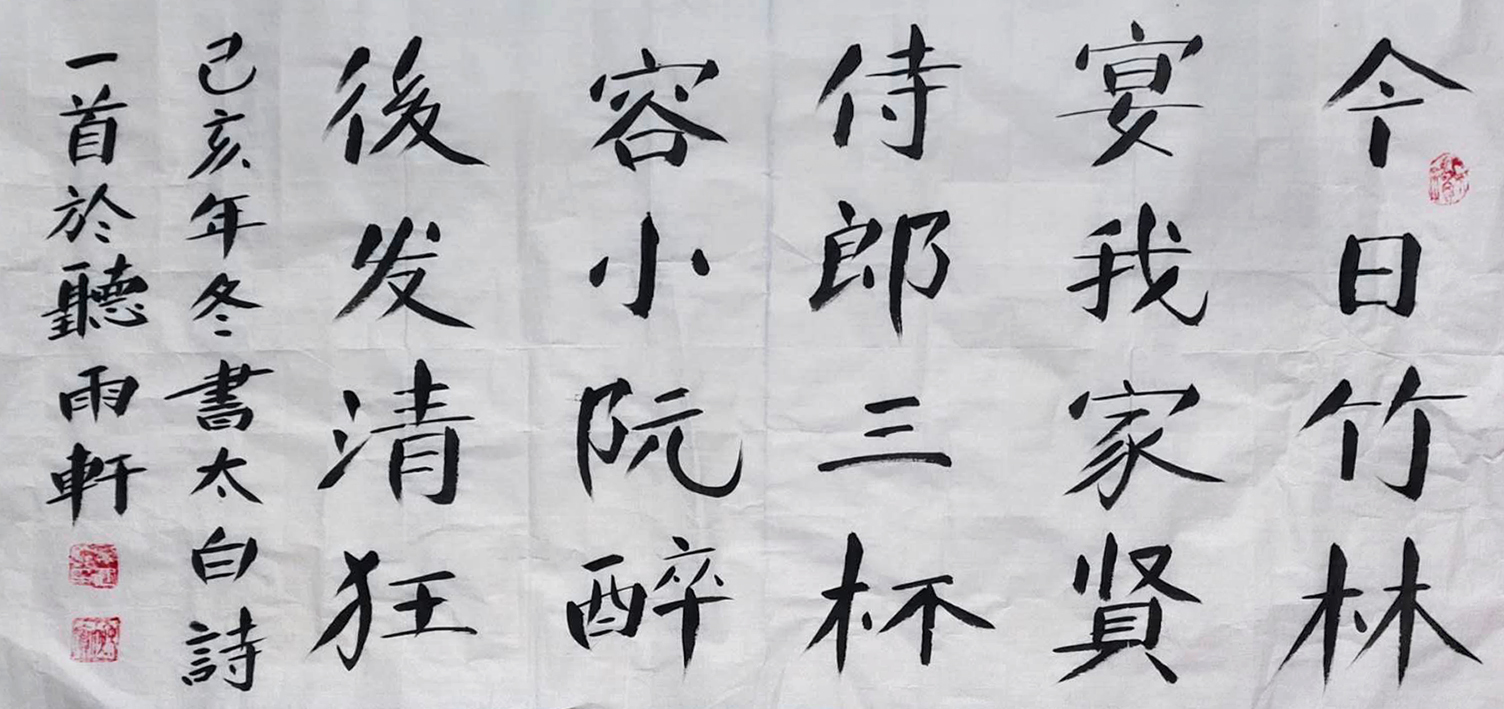 今日竹林
宴我家賢
侍郎三杯
容小阮醉
後发清狂
己亥年冬書太白詩
一首於聽雨軒